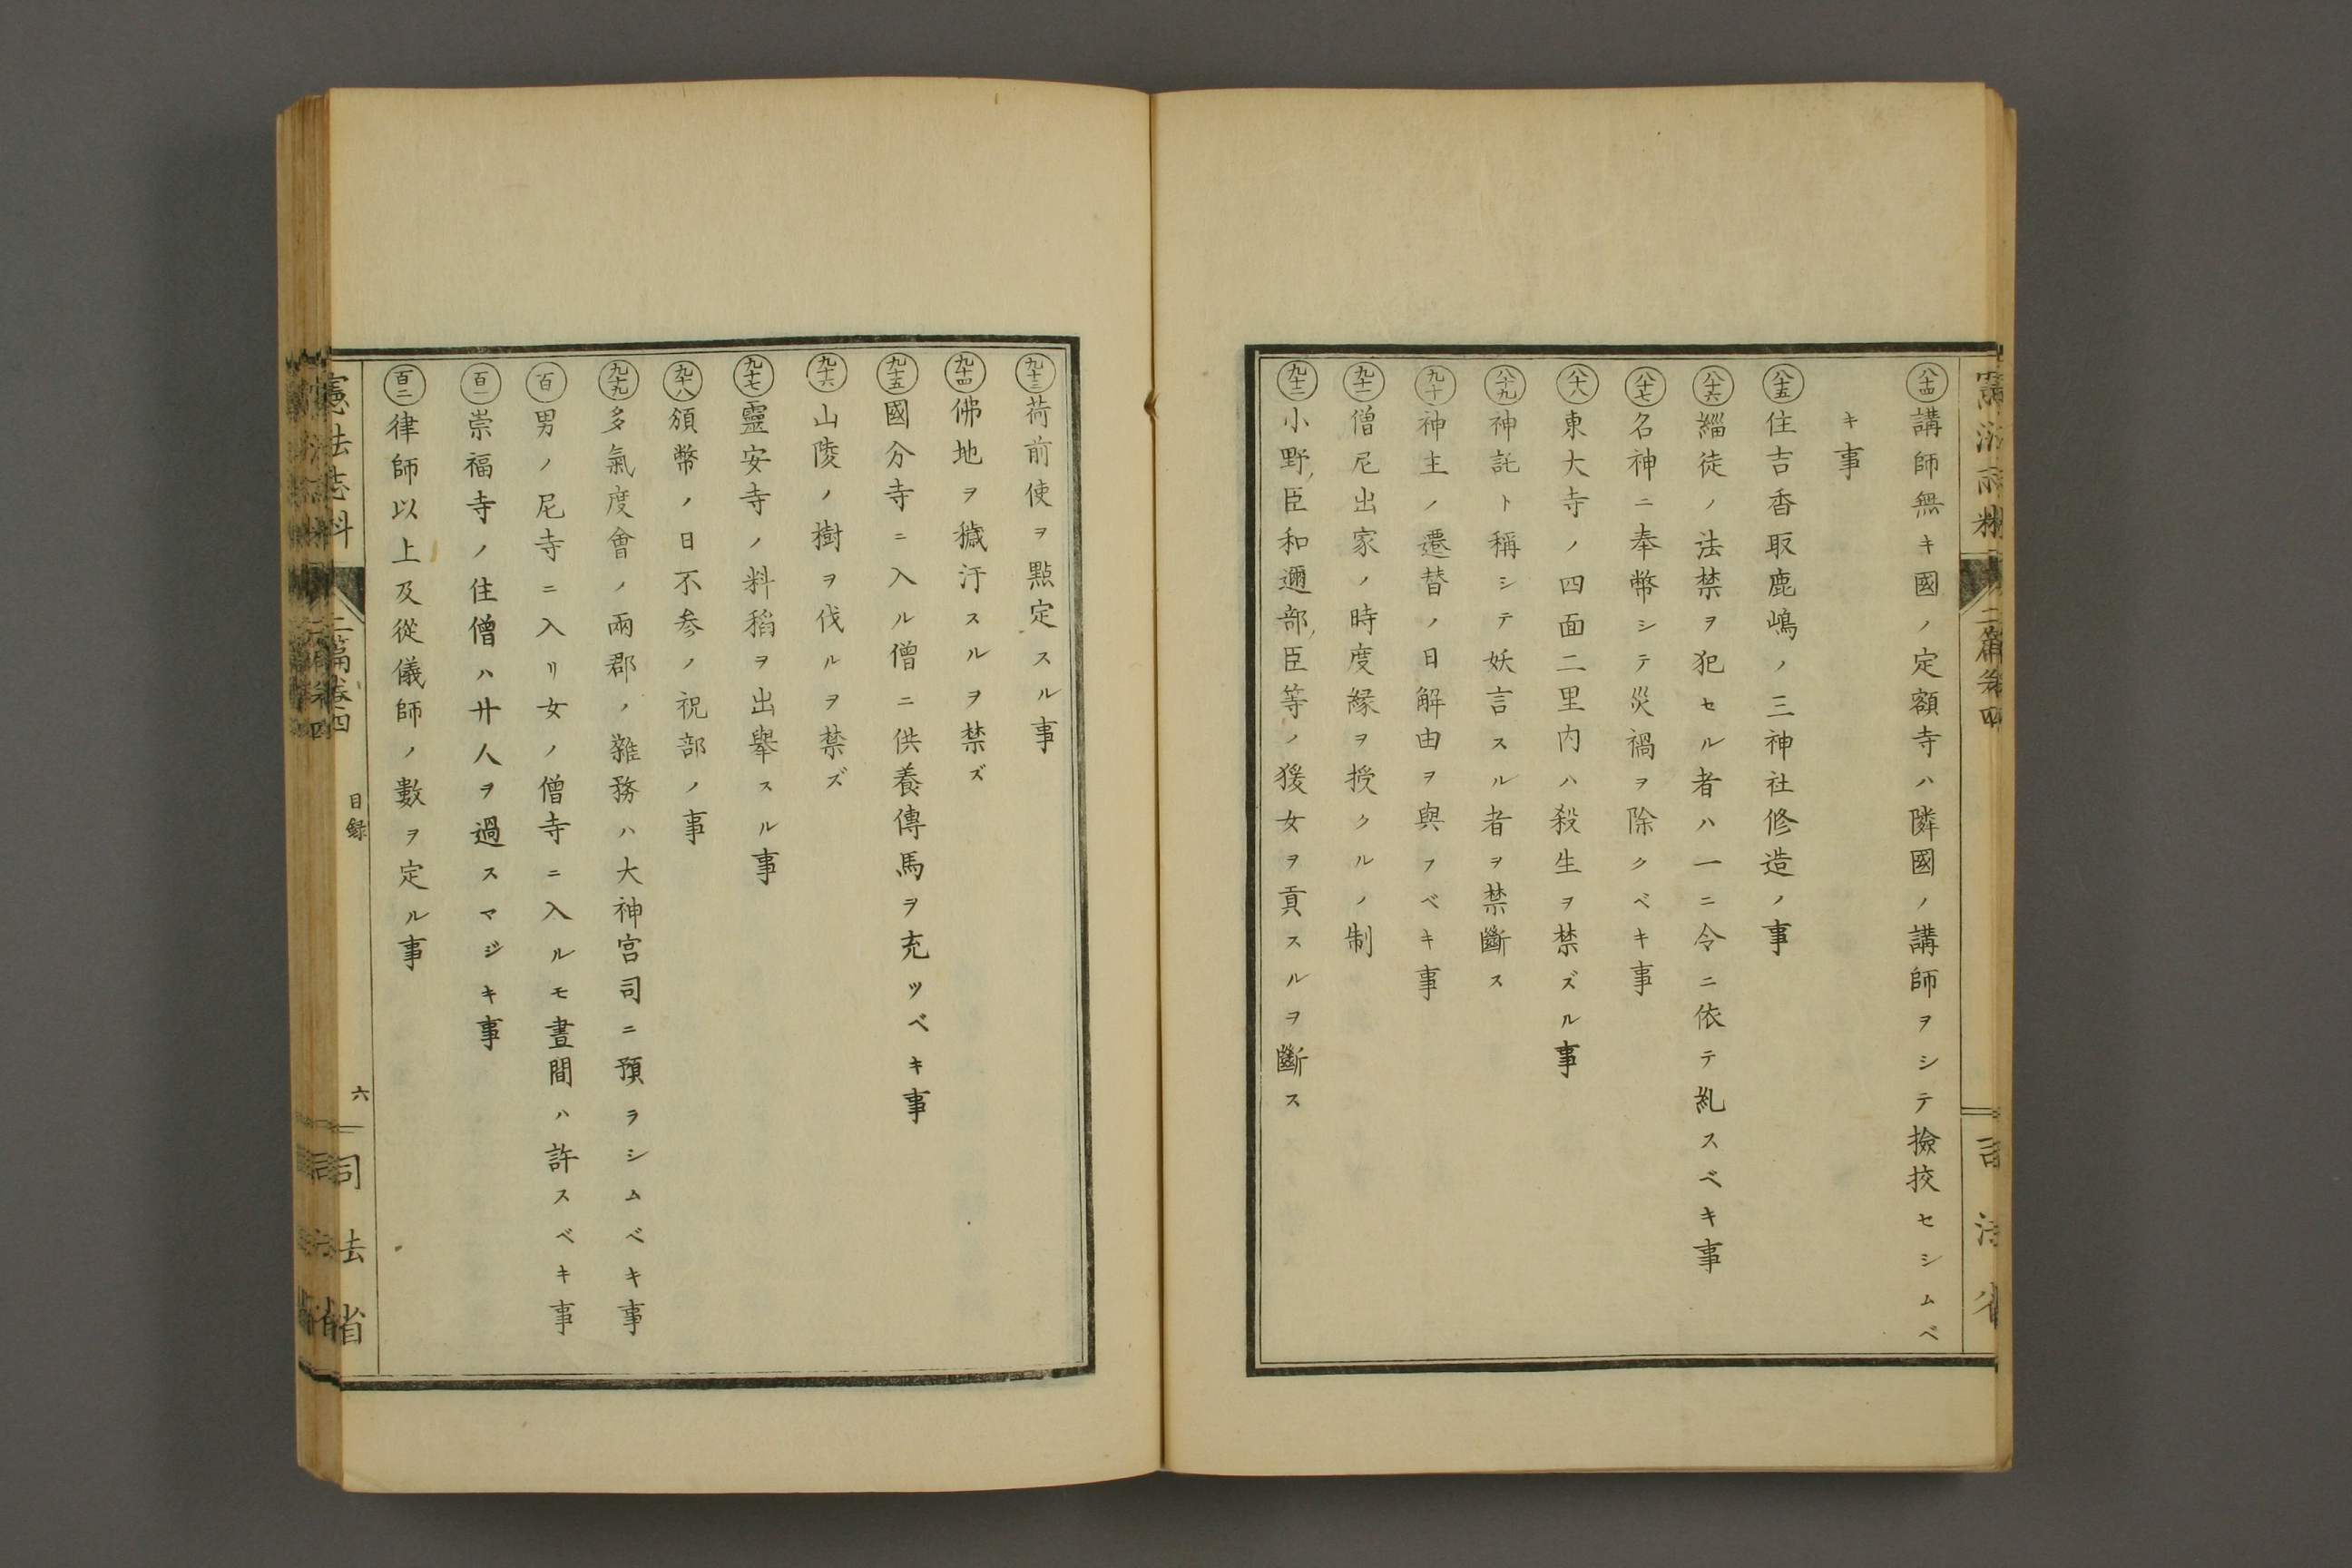 八十四 講師無キ國ノ定額寺ハ隣國ノ講師ヲシテ撿挍セシムベ
キ事
八十五 住吉香取鹿嶋ノ三神社修造ノ事
八十六 緇徒ノ法禁ヲ犯セル者ハ一ニ令ニ依テ糺スベキ事
八十七 名神ニ奉幣シテ災禍ヲ除クベキ事
八十八 東大寺ノ四面二里内ハ殺生ヲ禁ズル事
八十九 神託ト稱シテ妖言スル者ヲ禁斷ス
九十 神主ノ遷替ノ日解由ヲ與フベキ事
九十一 僧尼出家ノ時度縁ヲ授クルノ制
九十二 小野ノ臣和邇部ノ臣等ノ猨女ヲ貢スルヲ斷ス
九十三 荷前使ヲ點定スル事
九十四 佛地ヲ穢汙スルヲ禁ズ
九十五 國分寺ニ入ル僧ニ供養傳馬ヲ充ツベキ事
九十六 山陵ノ樹ヲ伐ルヲ禁ズ
九十七 靈安寺ノ料稻ヲ出擧スル事
九十八 頒幣ノ日不参ノ祝部ノ事
九十九 多氣度會ノ兩郡ノ雜務ハ大神宮司ニ預ラシムベキ事
百 男ノ尼寺ニ入リ女ノ僧寺ニ入ルモ晝間ハ許スベキ事
百一 崇福寺ノ住僧ハ廿人ヲ過スマジキ事
百二 律師以上及從儀師ノ數ヲ定ル事
憲法志料 二篇卷四 目録 六 司法省